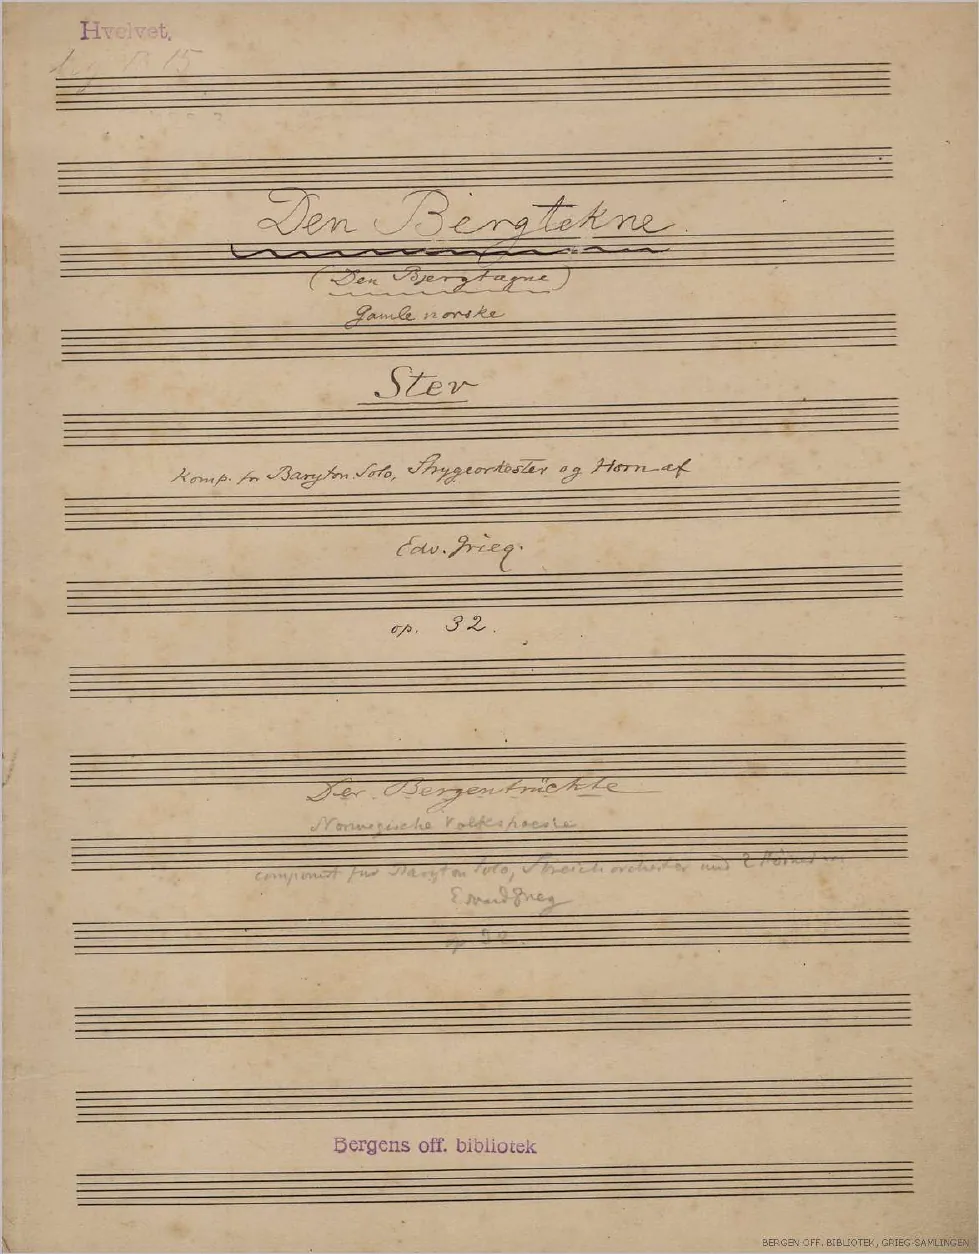 Hvelvet.
B 15
Den Bergtekne
(Den Bjergtagne)
Gamle norske
Stev
Komp. for Baryton Solo, Strygeorkester og Horn af
Edv. Grieg.
op. 32.
Der Bergentrückte
Norwegische Volkspoesie
componirt für Baryton Solo, Streichorchester und 2 Hörner von
Edvard Grieg
op
Bergens off. bibliotek
BERGEN OFF. BIBLIOTEK, GRIEG SAMLINGEN